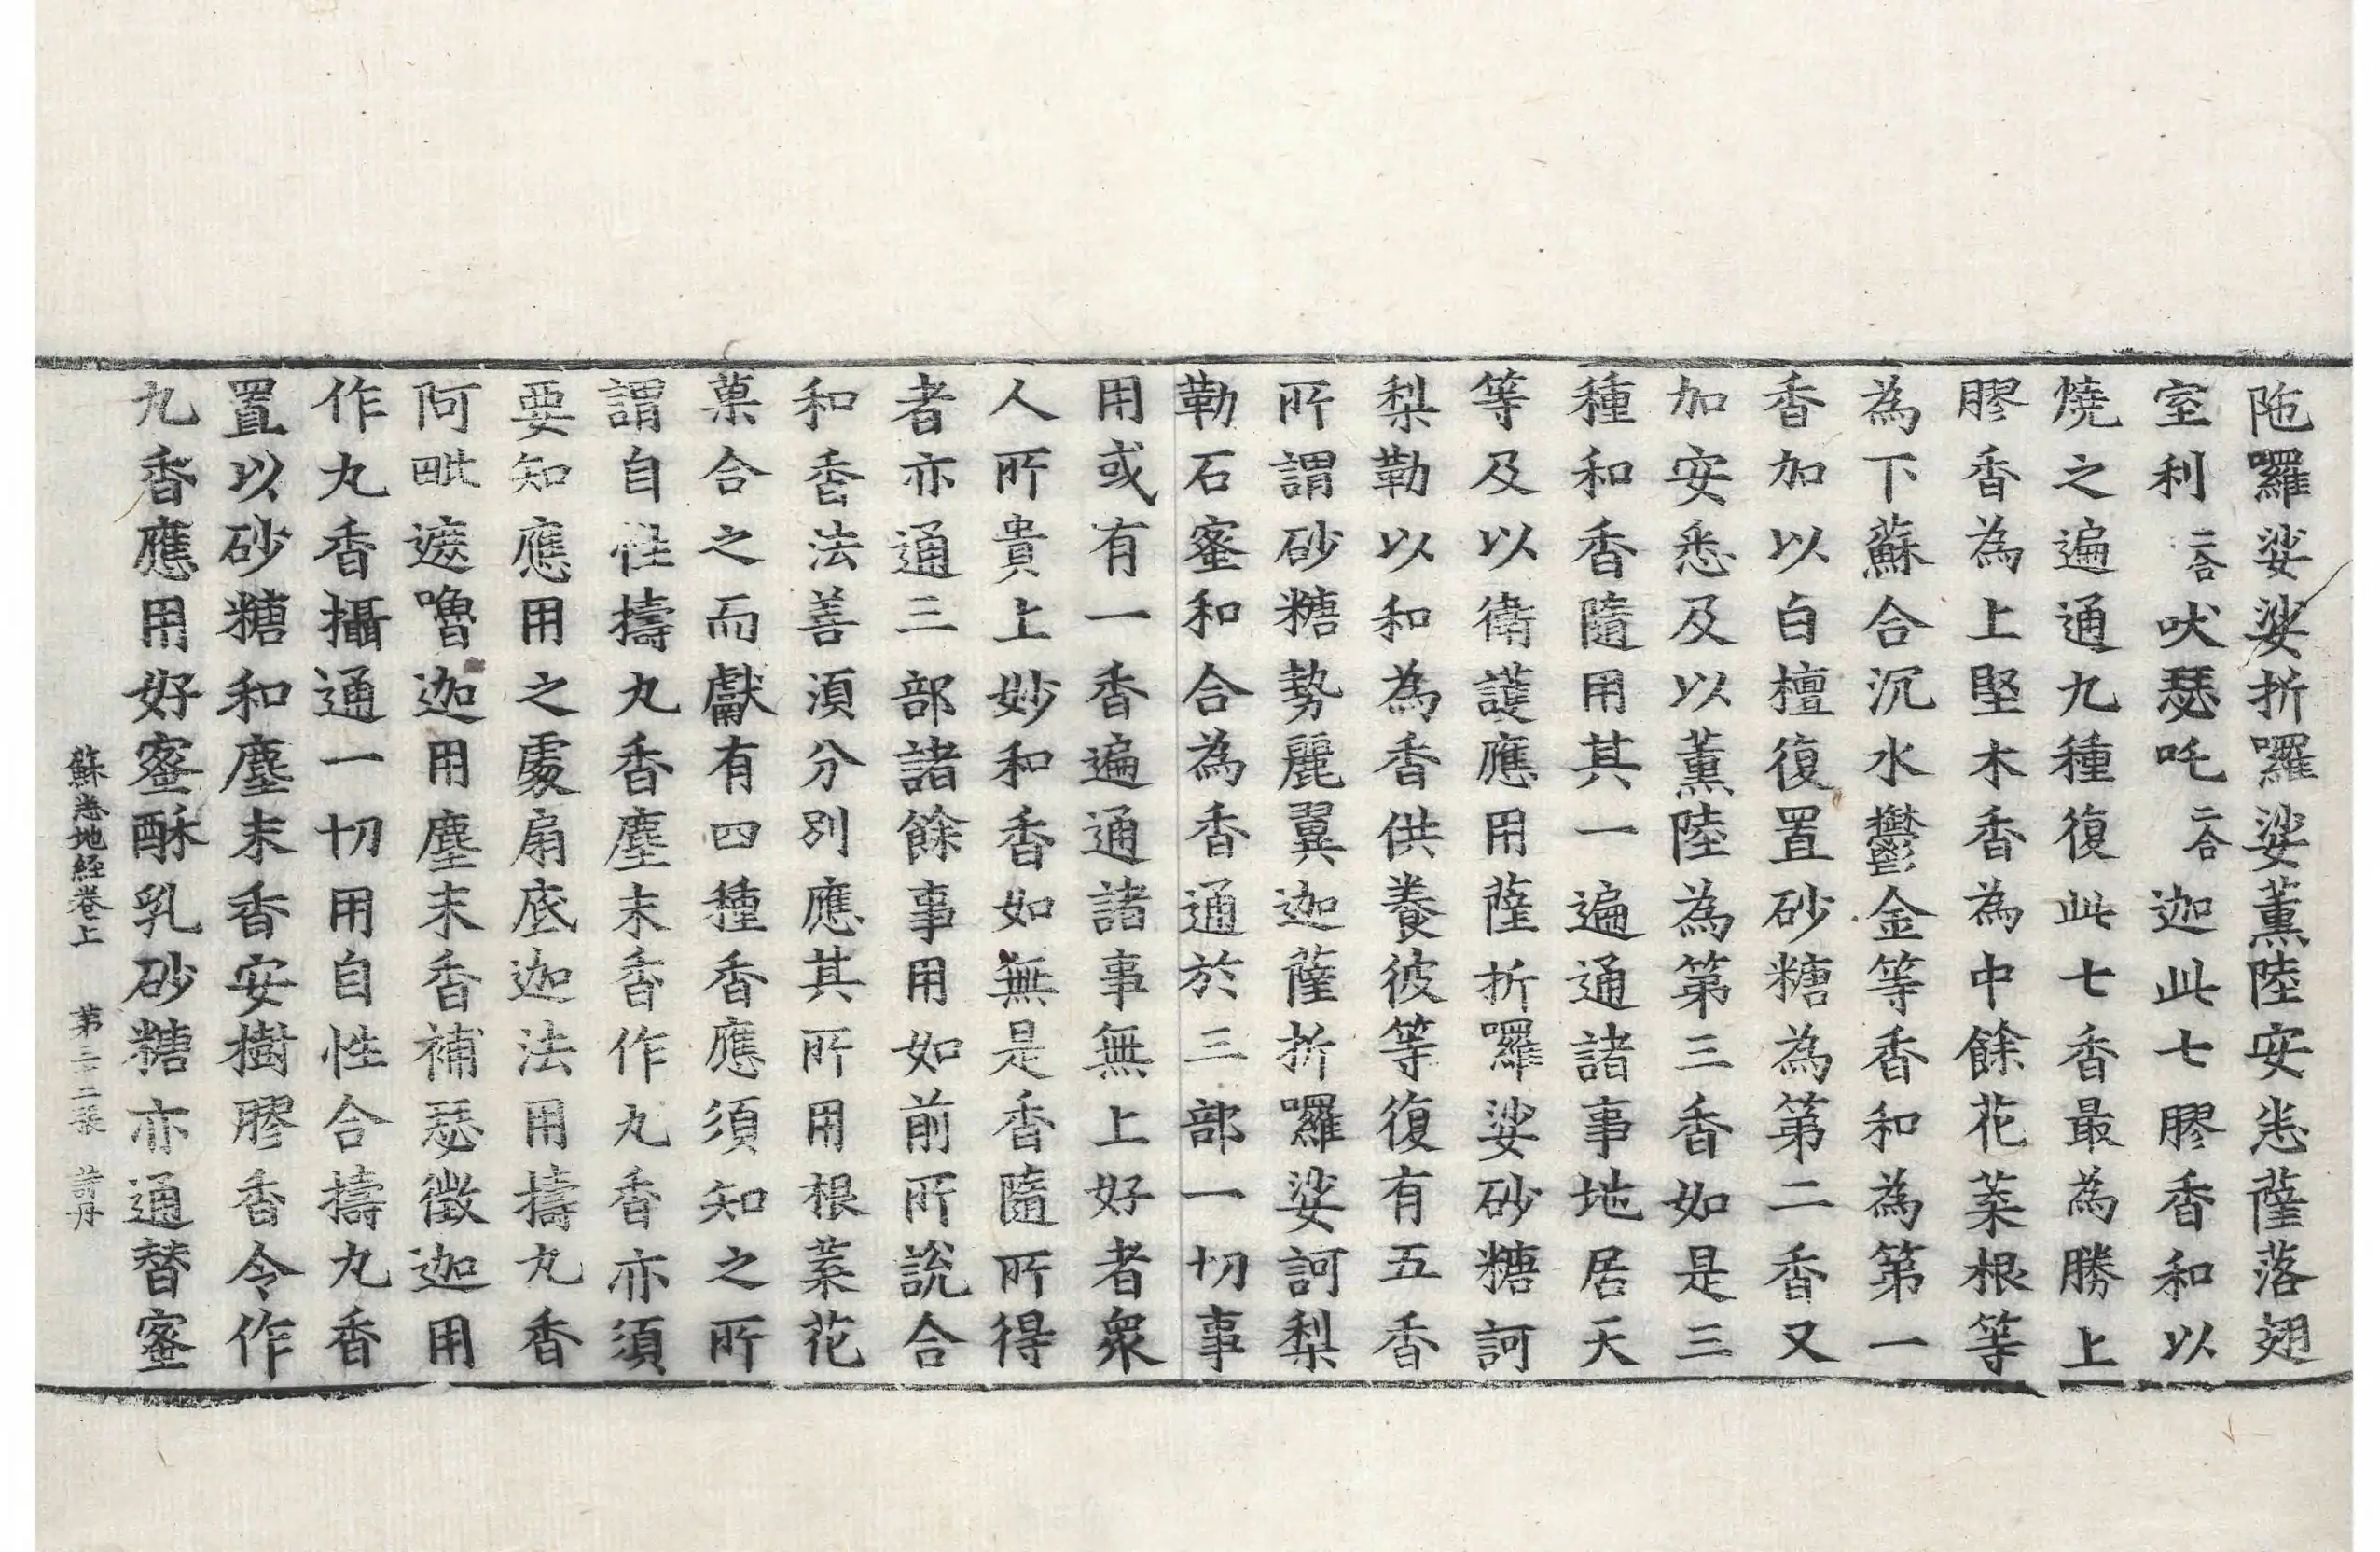 陁囉娑娑折囉娑薰陸安悉薩落翅
室利二合吠瑟吒二合迦此七膠香和以
燒之遍通九種復此七香最為勝上
膠香為上堅木香為中餘花葉根等
為下蘇合沉水鬱金等香和為第一
香加以白檀復置砂糖為第二香又
加安悉及以薰陸為第三香如是三
種和香隨用其一遍通諸事地居天
等及以衛護應用薩折囉娑砂糖訶
梨勒以和為香供養彼等復有五香
所謂砂糖勢麗翼迦薩折囉娑訶梨
勒石蜜和合為香通於三部一切事
用或有一香遍通諸事無上好者衆
人所貴上妙和香如無是香隨所得
者亦通三部諸餘事用如前所說合
和香法善須分別應其所用根葉花
菓合之而獻有四種香應須知之所
謂自性擣丸香塵末香作丸香亦須
要知應用之處扇底迦法用擣丸香
阿毗遮嚕迦用塵末香補瑟徵迦用
作丸香攝通一切用自性合擣丸香
置以砂糖和塵末香安樹膠香令作
丸香應用好蜜酥乳砂糖亦通替蜜
蘇悉地經卷上 第三十二張 詩丹